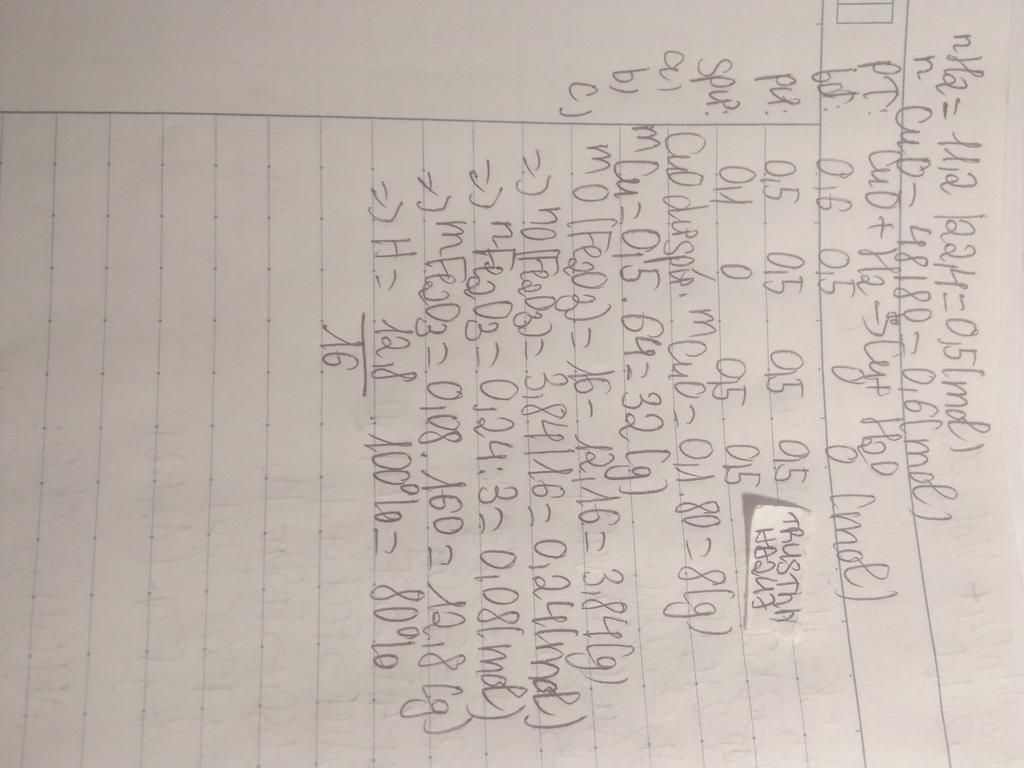 nH2 = 11,2/22,4 = 0,5(mol)
n CuO = 48/80 = 0,6(mol)
PT: CuO + H2 -> Cu + H2O
bđ: 0,6 0,5 0 0 (mol)
pư: 0,5 0,5 0,5 0,5
spư: 0,1 0 0,5 0,5
a) CuO dư spứ. mCuO = 0,1.80 = 8(g)
b) mCu = 0,5.64 = 32(g)
c) mO (Fe2O3) = 16 - 12,16 = 3,84(g)
=) nO(Fe2O3) = 3,84/16 = 0,24(mol)
=) nFe2O3 = 0,24:3 = 0,08(mol)
=) mFe2O3 = 0,08.160 = 12,8(g)
=) H = 12,8/16 . 100% = 80%
TRUSTINH
HABGI7